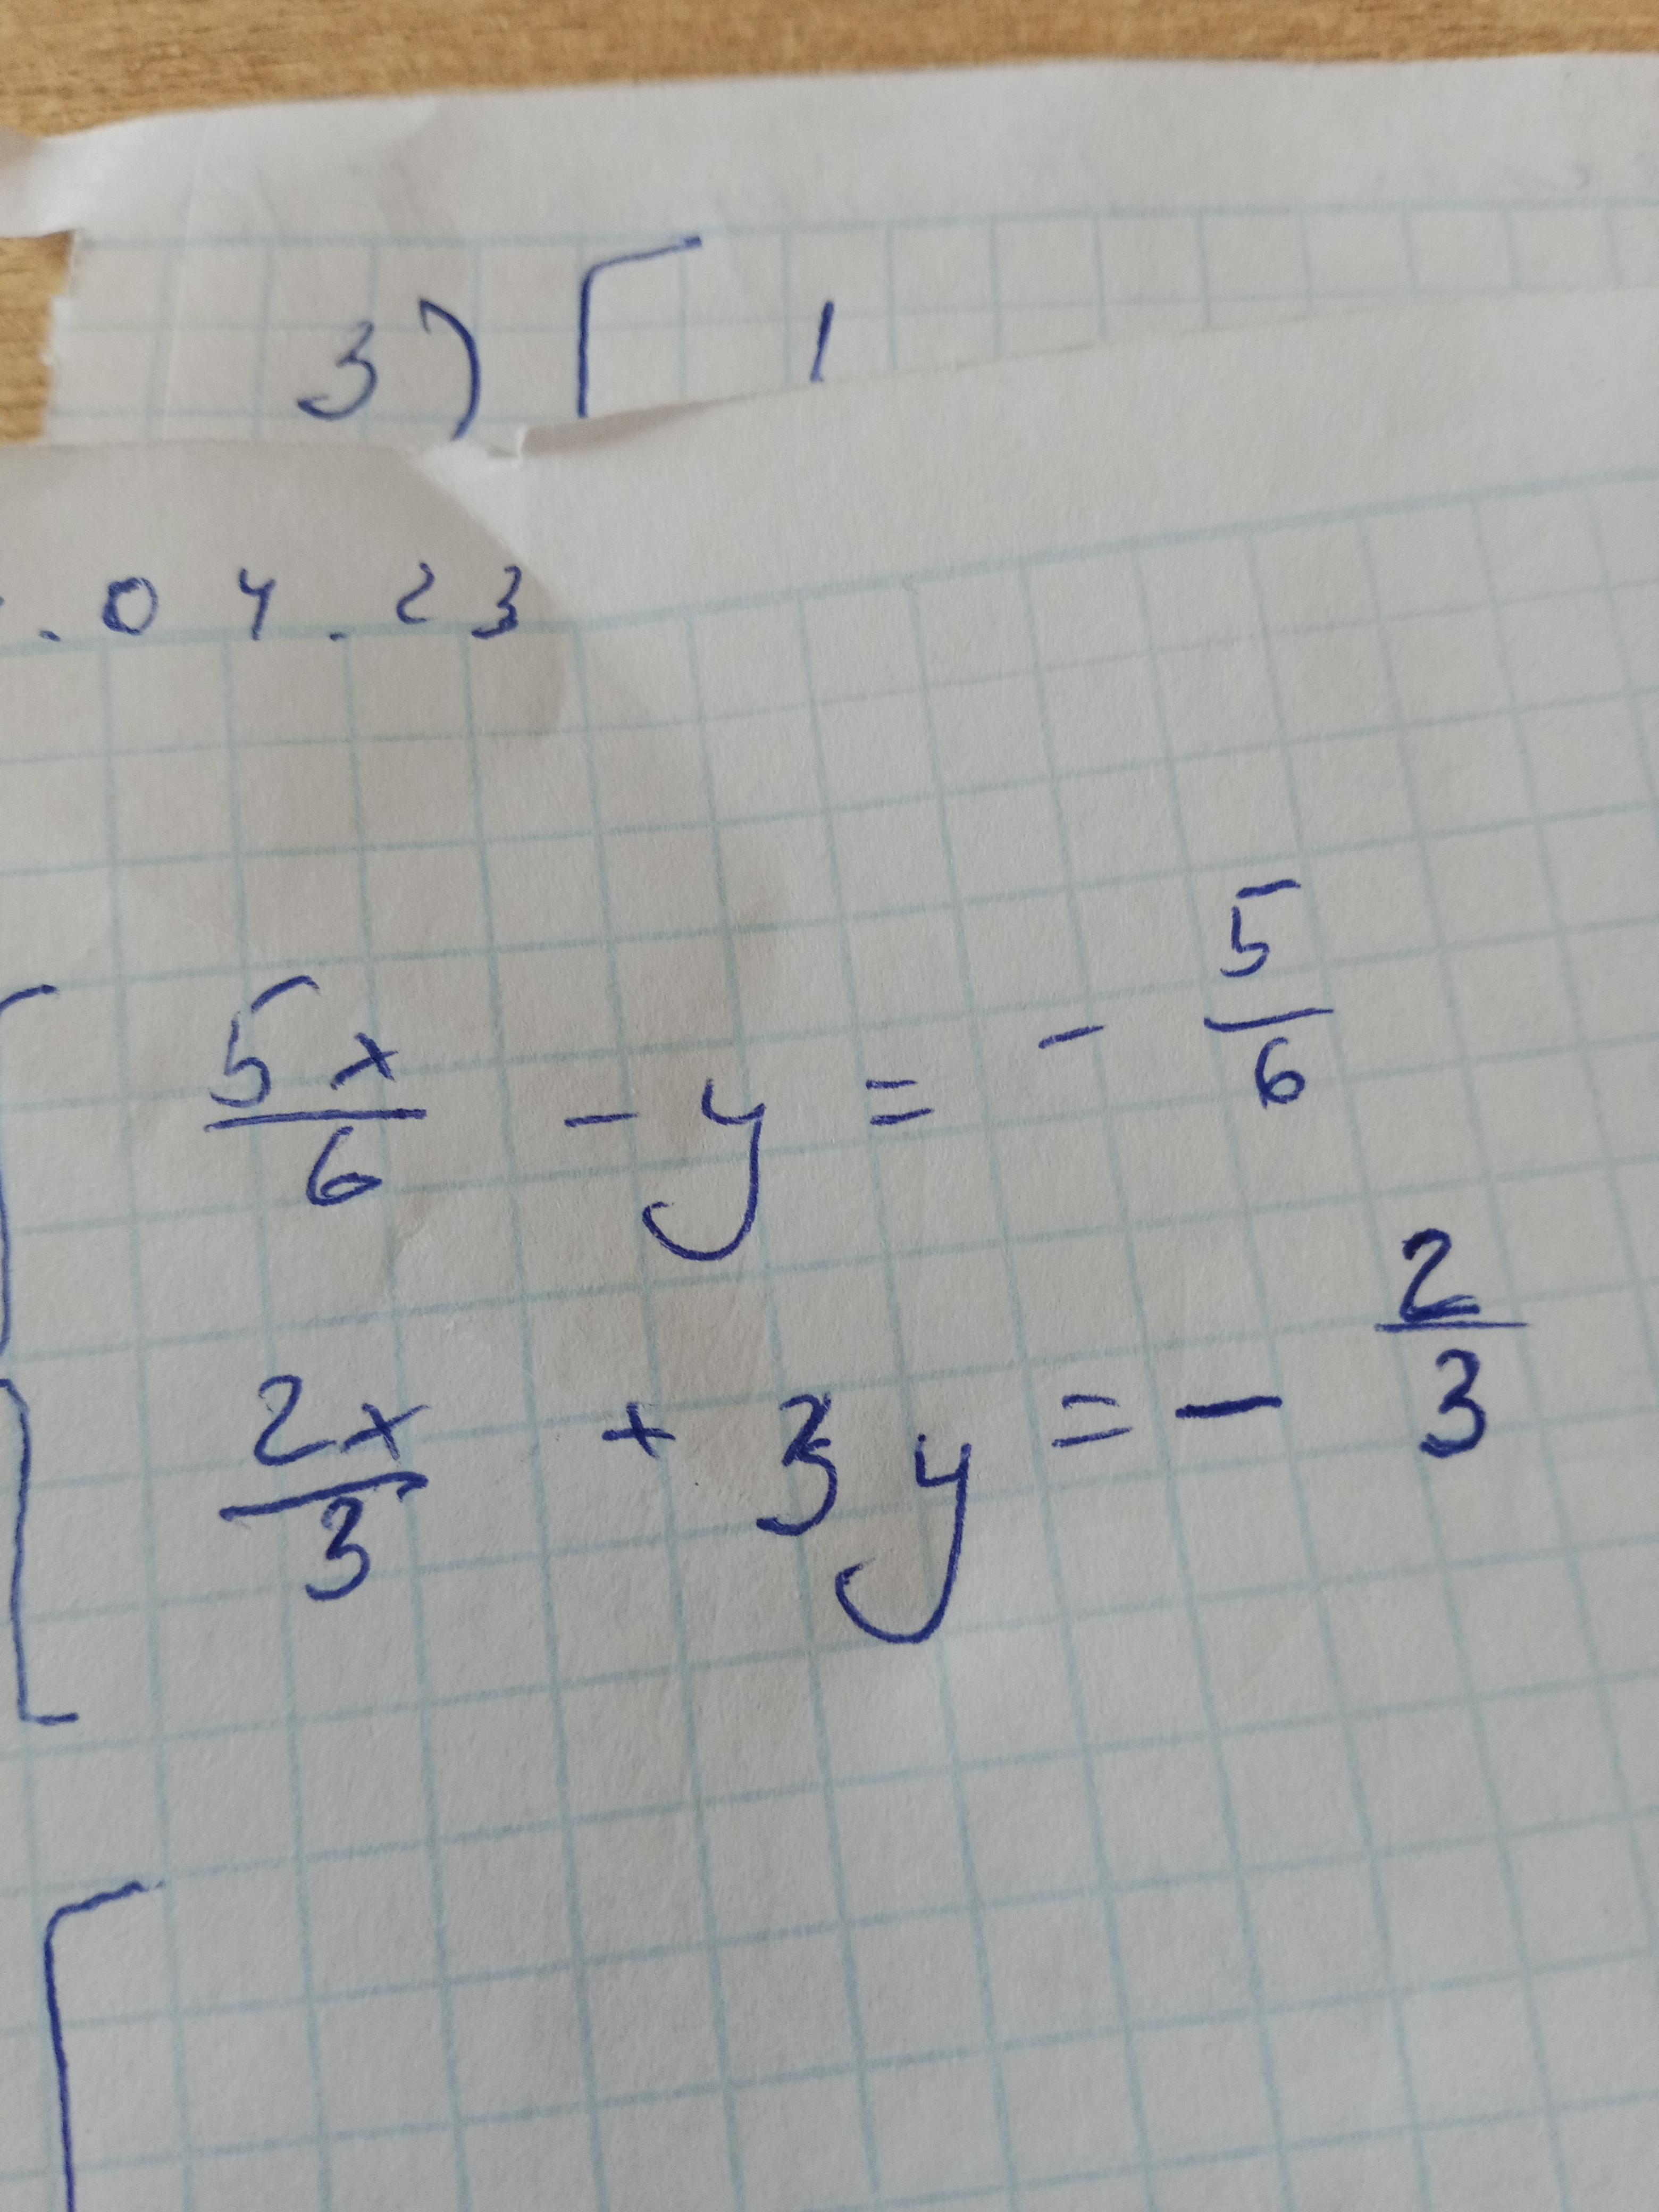 3) 1
.04.23
5x/6 - y = - 5/6
2x/3 + 3y = - 2/3